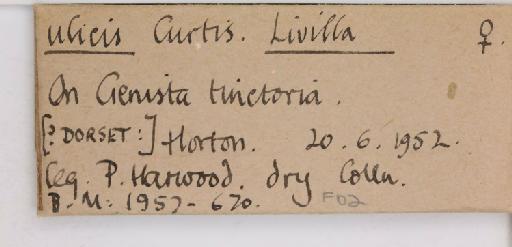 ulicis Curtis. Livilla ♀.
On Genista tinctoria.
[? DORSET:] Horton. 20.6.1952.
Leg. P. Harwood. dry Colln.
B.M. 1957-670. F02